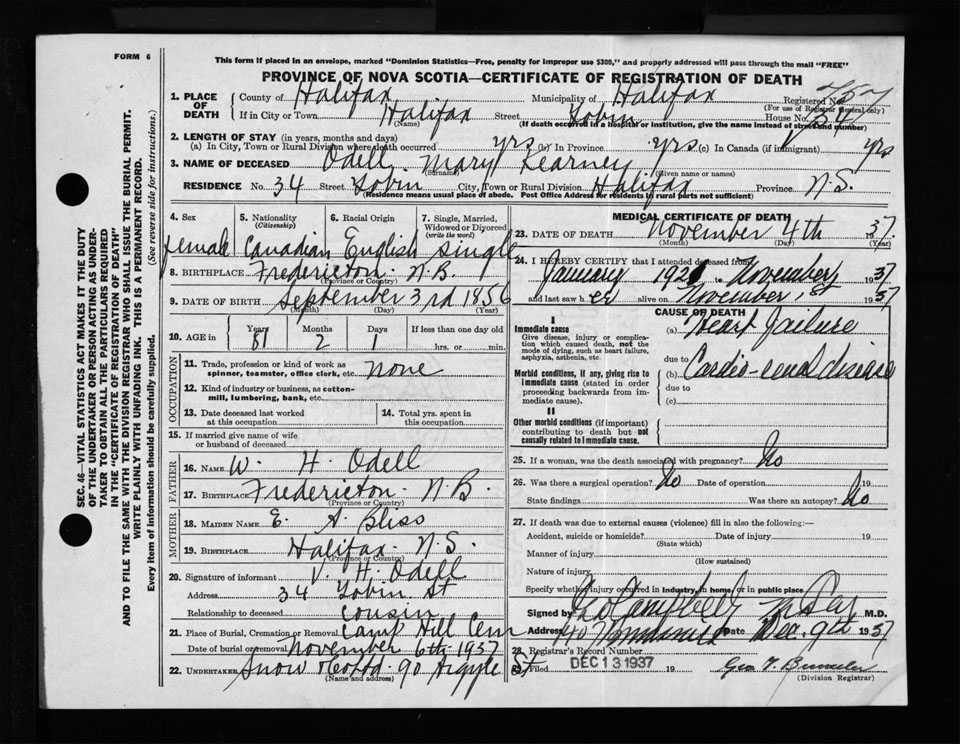 FORM 6
This form if placed in an envelope, marked "Dominion Statistics—Free, penalty for improper use $300," and properly addressed will pass through the mail "FREE"
PROVINCE OF NOVA SCOTIA—CERTIFICATE OF REGISTRATION OF DEATH
SEC. 46—VITAL STATISTICS ACT MAKES IT THE DUTY
OF THE UNDERTAKER OR PERSON ACTING AS UNDER-
TAKER TO OBTAIN ALL THE PARTICULARS REQUIRED
IN THE "CERTIFICATE OF REGISTRATION OF DEATH"
AND TO FILE THE SAME WITH THE DIVISION REGISTRAR WHO SHALL ISSUE THE BURIAL PERMIT.
WRITE PLAINLY WITH UNFADING INK. THIS IS A PERMANENT RECORD.
Every item of information should be carefully supplied. (See reverse side for instructions.)
1. PLACE OF DEATH
County of Halifax Municipality of Halifax Registered No. 757
(For use of Registrar General only)
If in City or Town Halifax Street Tobin House No. 34
(Name) (If death occurred in a hospital or institution, give the name instead of street and number)
2. LENGTH OF STAY (in years, months and days)
(a) In City, Town or Rural Division where death occurred yrs (b) In Province yrs (c) In Canada (if immigrant) yrs
3. NAME OF DECEASED Odell Mary Kearney
(Surname) (Given name or names)
RESIDENCE No. 34 Street Tobin City, Town or Rural Division Halifax Province N.S.
(Residence means usual place of abode. Post Office Address for residents in rural parts not sufficient)
4. Sex female
5. Nationality (Citizenship) Canadian
6. Racial Origin English
7. Single, Married, Widowed or Divorced (write the word) single
8. BIRTHPLACE Fredericton N.B.
(Province or Country)
9. DATE OF BIRTH September 3rd 1856
(Month) (Day) (Year)
10. AGE in Years 81 Months 2 Days 1 If less than one day old hrs. or min.
OCCUPATION
11. Trade, profession or kind of work as spinner, teamster, office clerk, etc. none
12. Kind of industry or business, as cotton-mill, lumbering, bank, etc.
13. Date deceased last worked at this occupation
14. Total yrs. spent in this occupation
15. If married give name of wife or husband of deceased
FATHER
16. NAME W. H. Odell
17. BIRTHPLACE Fredericton N.B.
(Province or Country)
MOTHER
18. MAIDEN NAME E. A. Bliss
19. BIRTHPLACE Halifax N.S.
(Province or Country)
20. Signature of informant V. H. Odell
Address 34 Tobin St
Relationship to deceased cousin
21. Place of Burial, Cremation or Removal Camp Hill Cem
Date of burial or removal November 6th 1937
22. UNDERTAKER Snow & Co Ltd 90 Argyle St
(Name and address)
MEDICAL CERTIFICATE OF DEATH
23. DATE OF DEATH November 4th 1937
(Month) (Day) (Year)
24. I HEREBY CERTIFY that I attended deceased from
January 1921 November 1937
and last saw her alive on November, 1937
CAUSE OF DEATH
I
Immediate cause
Give disease, injury or complication which caused death, not the mode of dying, such as heart failure, asphyxia, asthenia, etc.
(a) Heart failure
due to
Morbid conditions, if any, giving rise to immediate cause (stated in order proceeding backwards from immediate cause).
(b) Cardio-renal disease
due to
(c)
II
Other morbid conditions (if important) contributing to death but not causally related to immediate cause.
25. If a woman, was the death associated with pregnancy? No
26. Was there a surgical operation? No Date of operation 19
State findings Was there an autopsy? No
27. If death was due to external causes (violence) fill in also the following:—
Accident, suicide or homicide? Date of injury 19
(State which)
Manner of injury
(How sustained)
Nature of injury
Specify whether injury occurred in industry, in home, or in public place
Signed by Campbell M.D.
Address 40 Date Dec. 9th 1937
28. Registrar's Record Number
Filed DEC 13 1937 19
(Division Registrar)